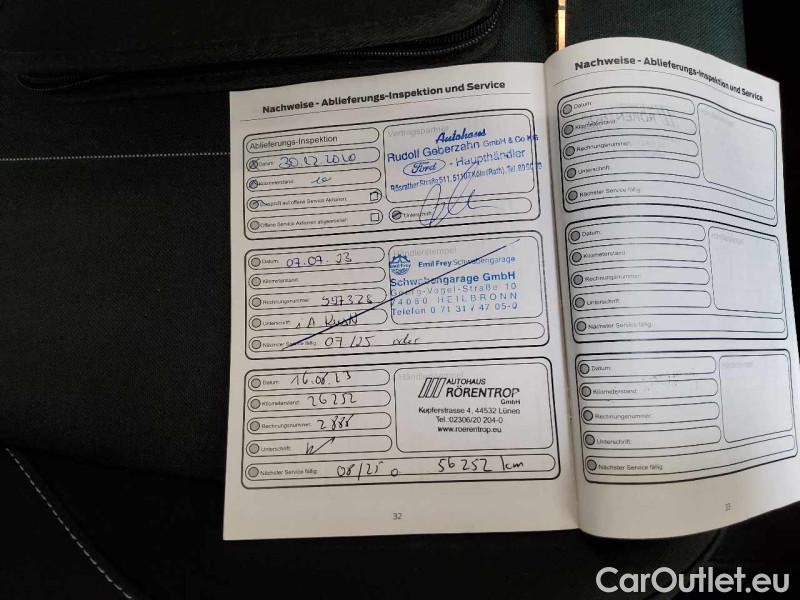 Nachweise - Ablieferungs-Inspektion und Service
Ablieferungs-Inspektion
Datum: 30.12.2020
Kilometerstand: 10
Überprüft auf offene Service Aktionen:
Offene Service Aktionen abgearbeitet:
Vertragspartner
Autohaus
Rudolf Geberzahn GmbH & Co KG
Ford - Haupthändler
Rösrather Straße 511, 51107 Köln (Rath), Tel. 89
Unterschrift:
Datum: 07.07.23
Kilometerstand:
Rechnungsnummer: 597328
Unterschrift:
Nächster Service fällig: 07/25 oder
Händlerstempel
Emil Frey
Emil Frey Schwabengarage
Schwabengarage GmbH
Georg-Vogel-Straße 10
74080 HEILBRONN
Telefon 0 71 31 / 47 05-0
Datum: 16.08.23
Kilometerstand: 26252
Rechnungsnummer: 2886
Unterschrift:
Nächster Service fällig: 08/25 o 56252 km
Händlerstempel
AUTOHAUS
RÖRENTROP
GmbH
Kupferstrasse 4, 44532 Lünen
Tel.:02306/20 204-0
www.roerentrop.eu
32
Nachweise - Ablieferungs-Inspektion und Service
Datum:
Kilometerstand:
Rechnungsnummer:
Unterschrift:
Nächster Service fällig:
Datum:
Kilometerstand:
Rechnungsnummer:
Unterschrift:
Nächster Service fällig:
Händlerstempel
Datum:
Kilometerstand:
Rechnungsnummer:
Unterschrift:
Nächster Service fällig:
33
CarOutlet.eu